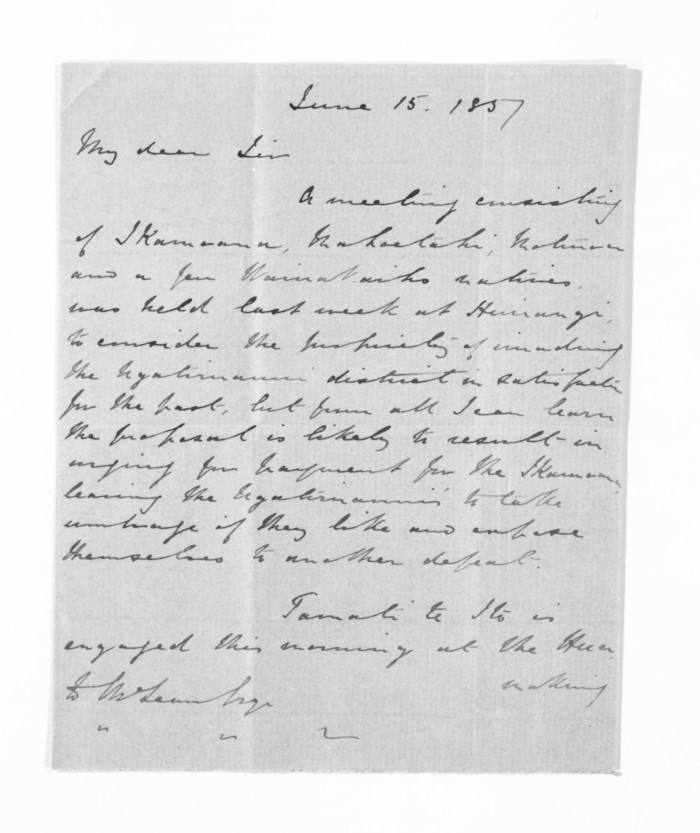 June 15. 1857
My dear Sir
A meeting consisting
of Ikamoana, Mahoetahi,
and a few natives,
was held last week at Huirangi,
to consider the propriety of invading
the Ngatiruanui district in satisfactn
for the past, but from all I can learn
the proposal is likely to result in
urging for payment for the Ikamoana,
leaving the Ngatiruanuis to take
umbrage if they like and expose
themselves to another defeat.
Tamati te Ito is
engaged this morning at the Hua
making
D McLean Esqr
" " "